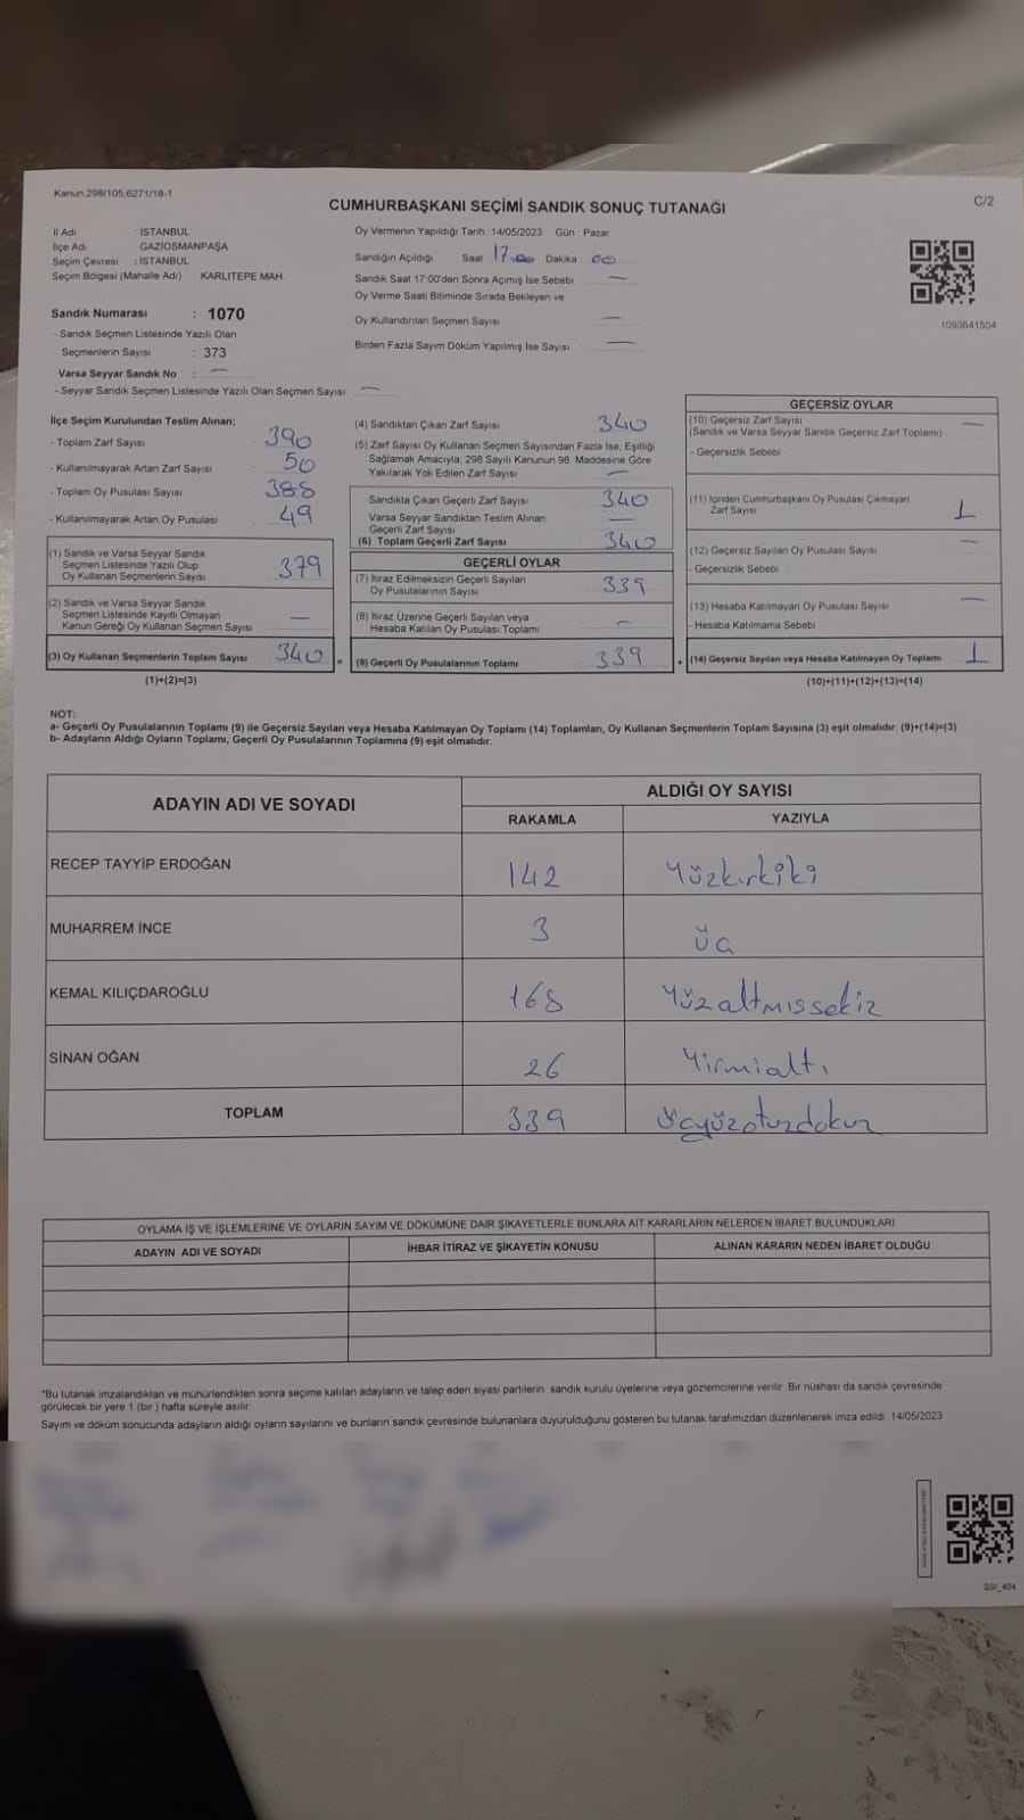 Kanun 298/105,6271/18-1
C/2
CUMHURBAŞKANI SEÇİMİ SANDIK SONUÇ TUTANAĞI
İl Adı : İSTANBUL
İlçe Adı : GAZİOSMANPAŞA
Seçim Çevresi : İSTANBUL
Seçim Bölgesi (Mahalle Adı) KARLITEPE MAH.
Sandık Numarası : 1070
- Sandık Seçmen Listesinde Yazılı Olan
Seçmenlerin Sayısı : 373
Varsa Seyyar Sandık No : —
- Seyyar Sandık Seçmen Listesinde Yazılı Olan Seçmen Sayısı —
Oy Vermenin Yapıldığı Tarih :14/05/2023 Gün : Pazar
Sandığın Açıldığı Saat 17.00 Dakika 00
Sandık Saat 17:00'den Sonra Açılmış İse Sebebi —
Oy Verme Saati Bitiminde Sırada Bekleyen ve
Oy Kullandırılan Seçmen Sayısı —
Birden Fazla Sayım Döküm Yapılmış İse Sayısı —
1093641504
İlçe Seçim Kurulundan Teslim Alınan;
- Toplam Zarf Sayısı 390
- Kullanılmayarak Artan Zarf Sayısı 50
- Toplam Oy Pusulası Sayısı 388
- Kullanılmayarak Artan Oy Pusulası 49
(1) Sandık ve Varsa Seyyar Sandık
Seçmen Listesinde Yazılı Olup
Oy Kullanan Seçmenlerin Sayısı 379
(2) Sandık ve Varsa Seyyar Sandık
Seçmen Listesinde Kayıtlı Olmayan
Kanun Gereği Oy Kullanan Seçmen Sayısı —
(3) Oy Kullanan Seçmenlerin Toplam Sayısı 340
(1)+(2)=(3)
(4) Sandıktan Çıkan Zarf Sayısı 340
(5) Zarf Sayısı Oy Kullanan Seçmen Sayısından Fazla İse, Eşitliği
Sağlamak Amacıyla, 298 Sayılı Kanunun 98. Maddesine Göre
Yakılarak Yok Edilen Zarf Sayısı —
Sandıkta Çıkan Geçerli Zarf Sayısı 340
Varsa Seyyar Sandıktan Teslim Alınan
Geçerli Zarf Sayısı —
(6) Toplam Geçerli Zarf Sayısı 340
GEÇERLİ OYLAR
(7) İtiraz Edilmeksizin Geçerli Sayılan
Oy Pusulalarının Sayısı 339
(8) İtiraz Üzerine Geçerli Sayılan veya
Hesaba Katılan Oy Pusulası Toplamı —
(9) Geçerli Oy Pusulalarının Toplamı 339
GEÇERSİZ OYLAR
(10) Geçersiz Zarf Sayısı —
(Sandık ve Varsa Seyyar Sandık Geçersiz Zarf Toplamı)
- Geçersizlik Sebebi
(11) İçinden Cumhurbaşkanı Oy Pusulası Çıkmayan
Zarf Sayısı 1
(12) Geçersiz Sayılan Oy Pusulası Sayısı —
- Geçersizlik Sebebi
(13) Hesaba Katılmayan Oy Pusulası Sayısı —
- Hesaba Katılmama Sebebi
(14) Geçersiz Sayılan veya Hesaba Katılmayan Oy Toplamı 1
(10)+(11)+(12)+(13)=(14)
NOT:
a- Geçerli Oy Pusulalarının Toplamı (9) ile Geçersiz Sayılan veya Hesaba Katılmayan Oy Toplamı (14) Toplamları, Oy Kullanan Seçmenlerin Toplam Sayısına (3) eşit olmalıdır. (9)+(14)=(3)
b- Adayların Aldığı Oyların Toplamı, Geçerli Oy Pusulalarının Toplamına (9) eşit olmalıdır.
ADAYIN ADI VE SOYADI
ALDIĞI OY SAYISI
RAKAMLA YAZIYLA
RECEP TAYYİP ERDOĞAN 142 Yüzkırkiki
MUHARREM İNCE 3 üç
KEMAL KILIÇDAROĞLU 168 Yüzaltmıssekiz
SİNAN OĞAN 26 Yirmialtı
TOPLAM 339 Üçyüzotuzdokuz
OYLAMA İŞ VE İŞLEMLERİNE VE OYLARIN SAYIM VE DÖKÜMÜNE DAİR ŞİKAYETLERLE BUNLARA AİT KARARLARIN NELERDEN İBARET BULUNDUKLARI
ADAYIN ADI VE SOYADI İHBAR İTİRAZ VE ŞİKAYETİN KONUSU ALINAN KARARIN NEDEN İBARET OLDUĞU
*Bu tutanak imzalandıktan ve mühürlendikten sonra seçime katılan adayların ve talep eden siyasi partilerin sandık kurulu üyelerine veya gözlemcilerine verilir. Bir nüshası da sandık çevresinde
görülecek bir yere 1 (bir) hafta süreyle asılır.
Sayım ve döküm sonucunda adayların aldığı oyların sayılarını ve bunların sandık çevresinde bulunanlara duyurulduğunu gösteren bu tutanak tarafımızdan düzenlenerek imza edildi. 14/05/2023